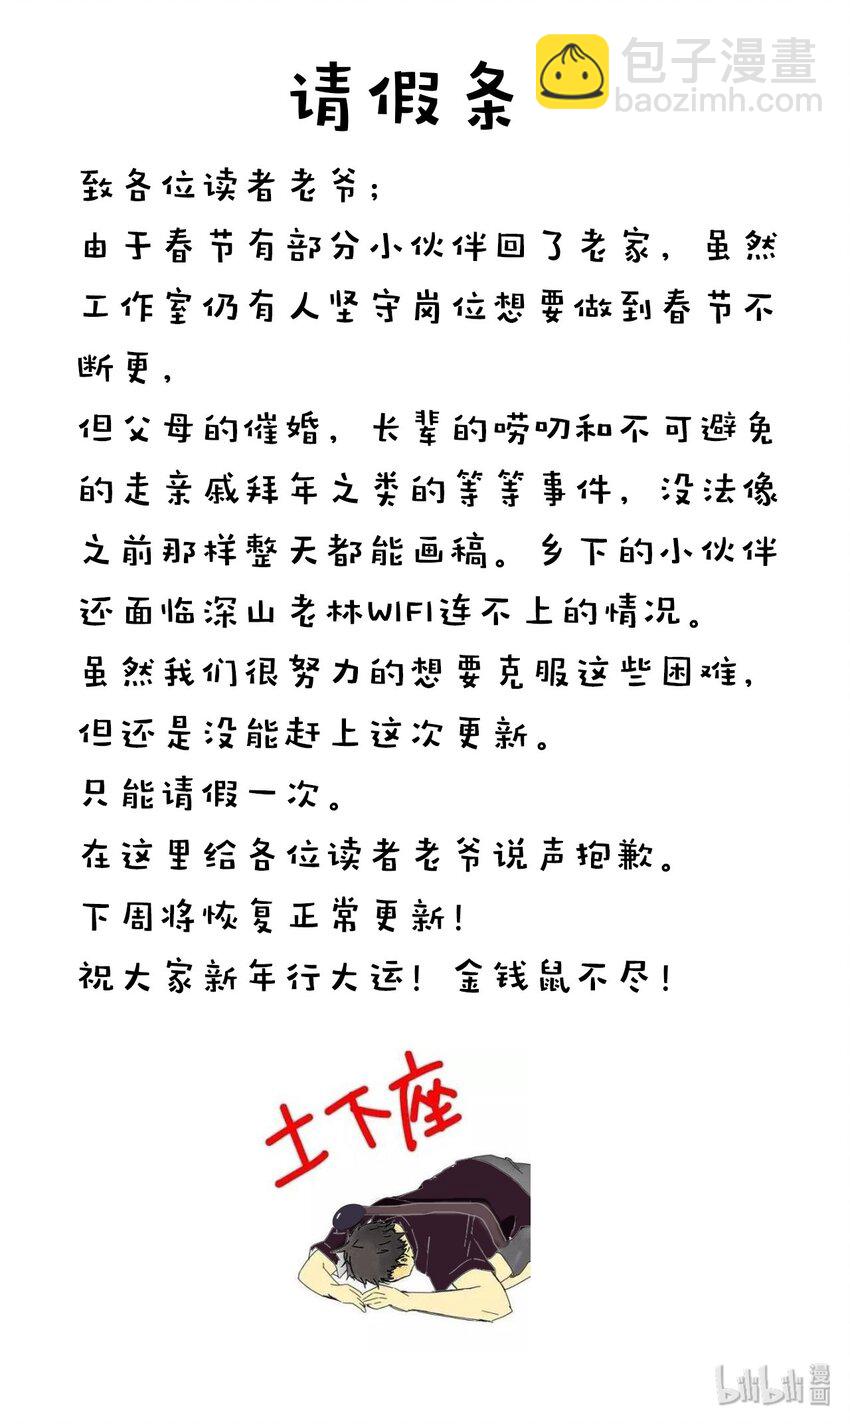 请假条
包子漫畫
baozimh.com
致各位读者老爷；
由于春节有部分小伙伴回了老家，虽然
工作室仍有人坚守岗位想要做到春节不
断更，
但父母的催婚，长辈的唠叨和不可避免
的走亲戚拜年之类的等等事件，没法像
之前那样整天都能画稿。乡下的小伙伴
还面临深山老林WIFI连不上的情况。
虽然我们很努力的想要克服这些困难，
但还是没能赶上这次更新。
只能请假一次。
在这里给各位读者老爷说声抱歉。
下周将恢复正常更新！
祝大家新年行大运！金钱鼠不尽！
土下座
bilibili漫画